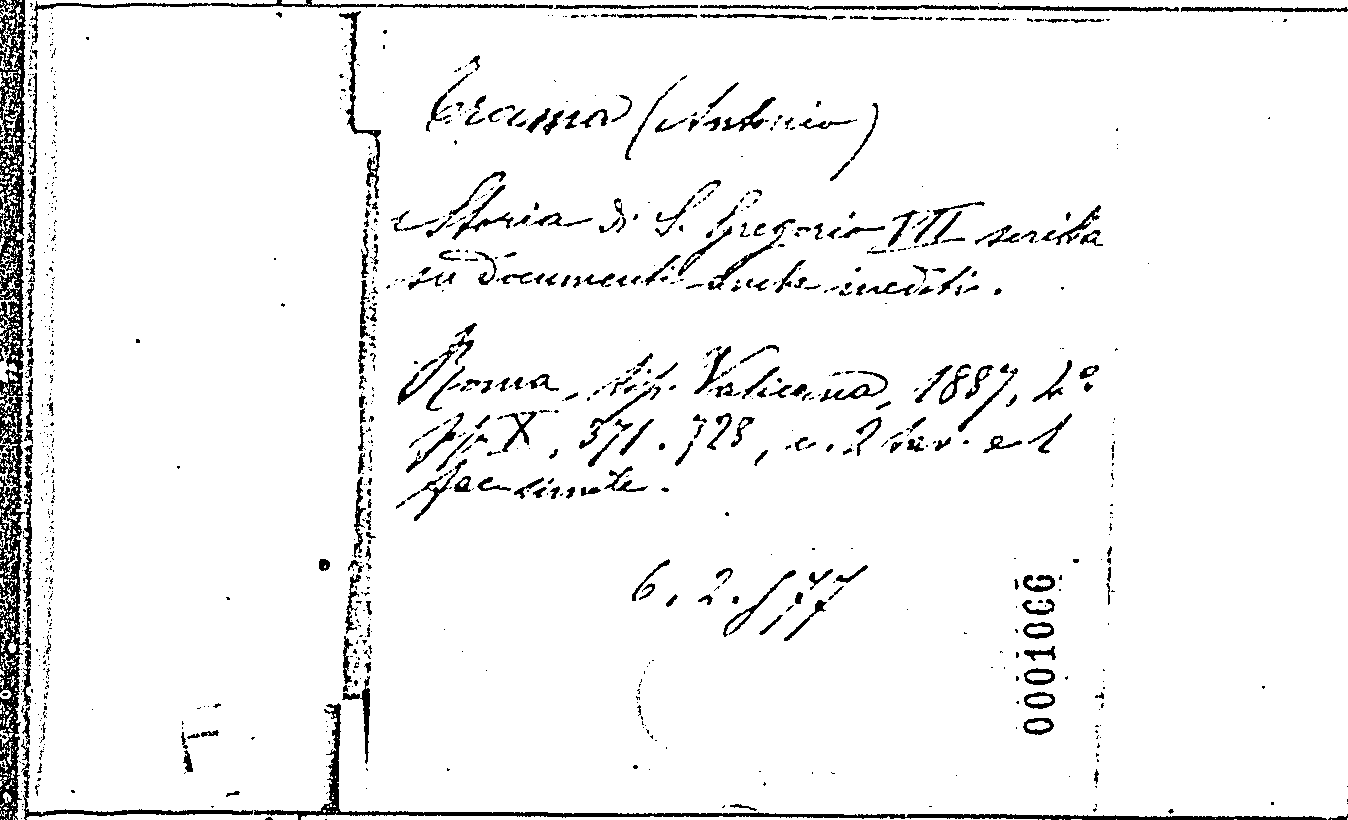 (Antonio)
Storia di S. Gregorio VII scritta
su documenti anche inediti.
Roma, tip. Vaticana, 1887, 2°
pp. X, 371. 728, c. 2 tav. e 1
fac-simile.
6. 2. 577
0001066
F